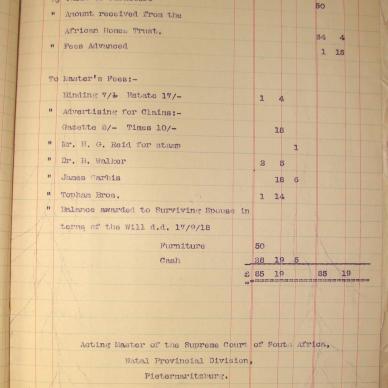 50
" Amount received from the
African Homes Trust. 34 4
" Fees Advanced 1 15
To Master's Fees:-
Binding 7/- Estate 17/- 1 4
" Advertising for Claims:-
Gazette 8/- Times 10/- 18
" Mr. H. G. Reid for stamp 1
" Dr. H. Walker 2 5
" James 18 6
" Topham Bros. 1 14
" Balance awarded to Surviving Spouse in
terms of the Will d.d. 17/9/18
Furniture 50
Cash 19 5
£ 85 19 85 19
Acting Master of the Supreme Court of South Africa,
Natal Provincial Division,
Pietermaritzburg.